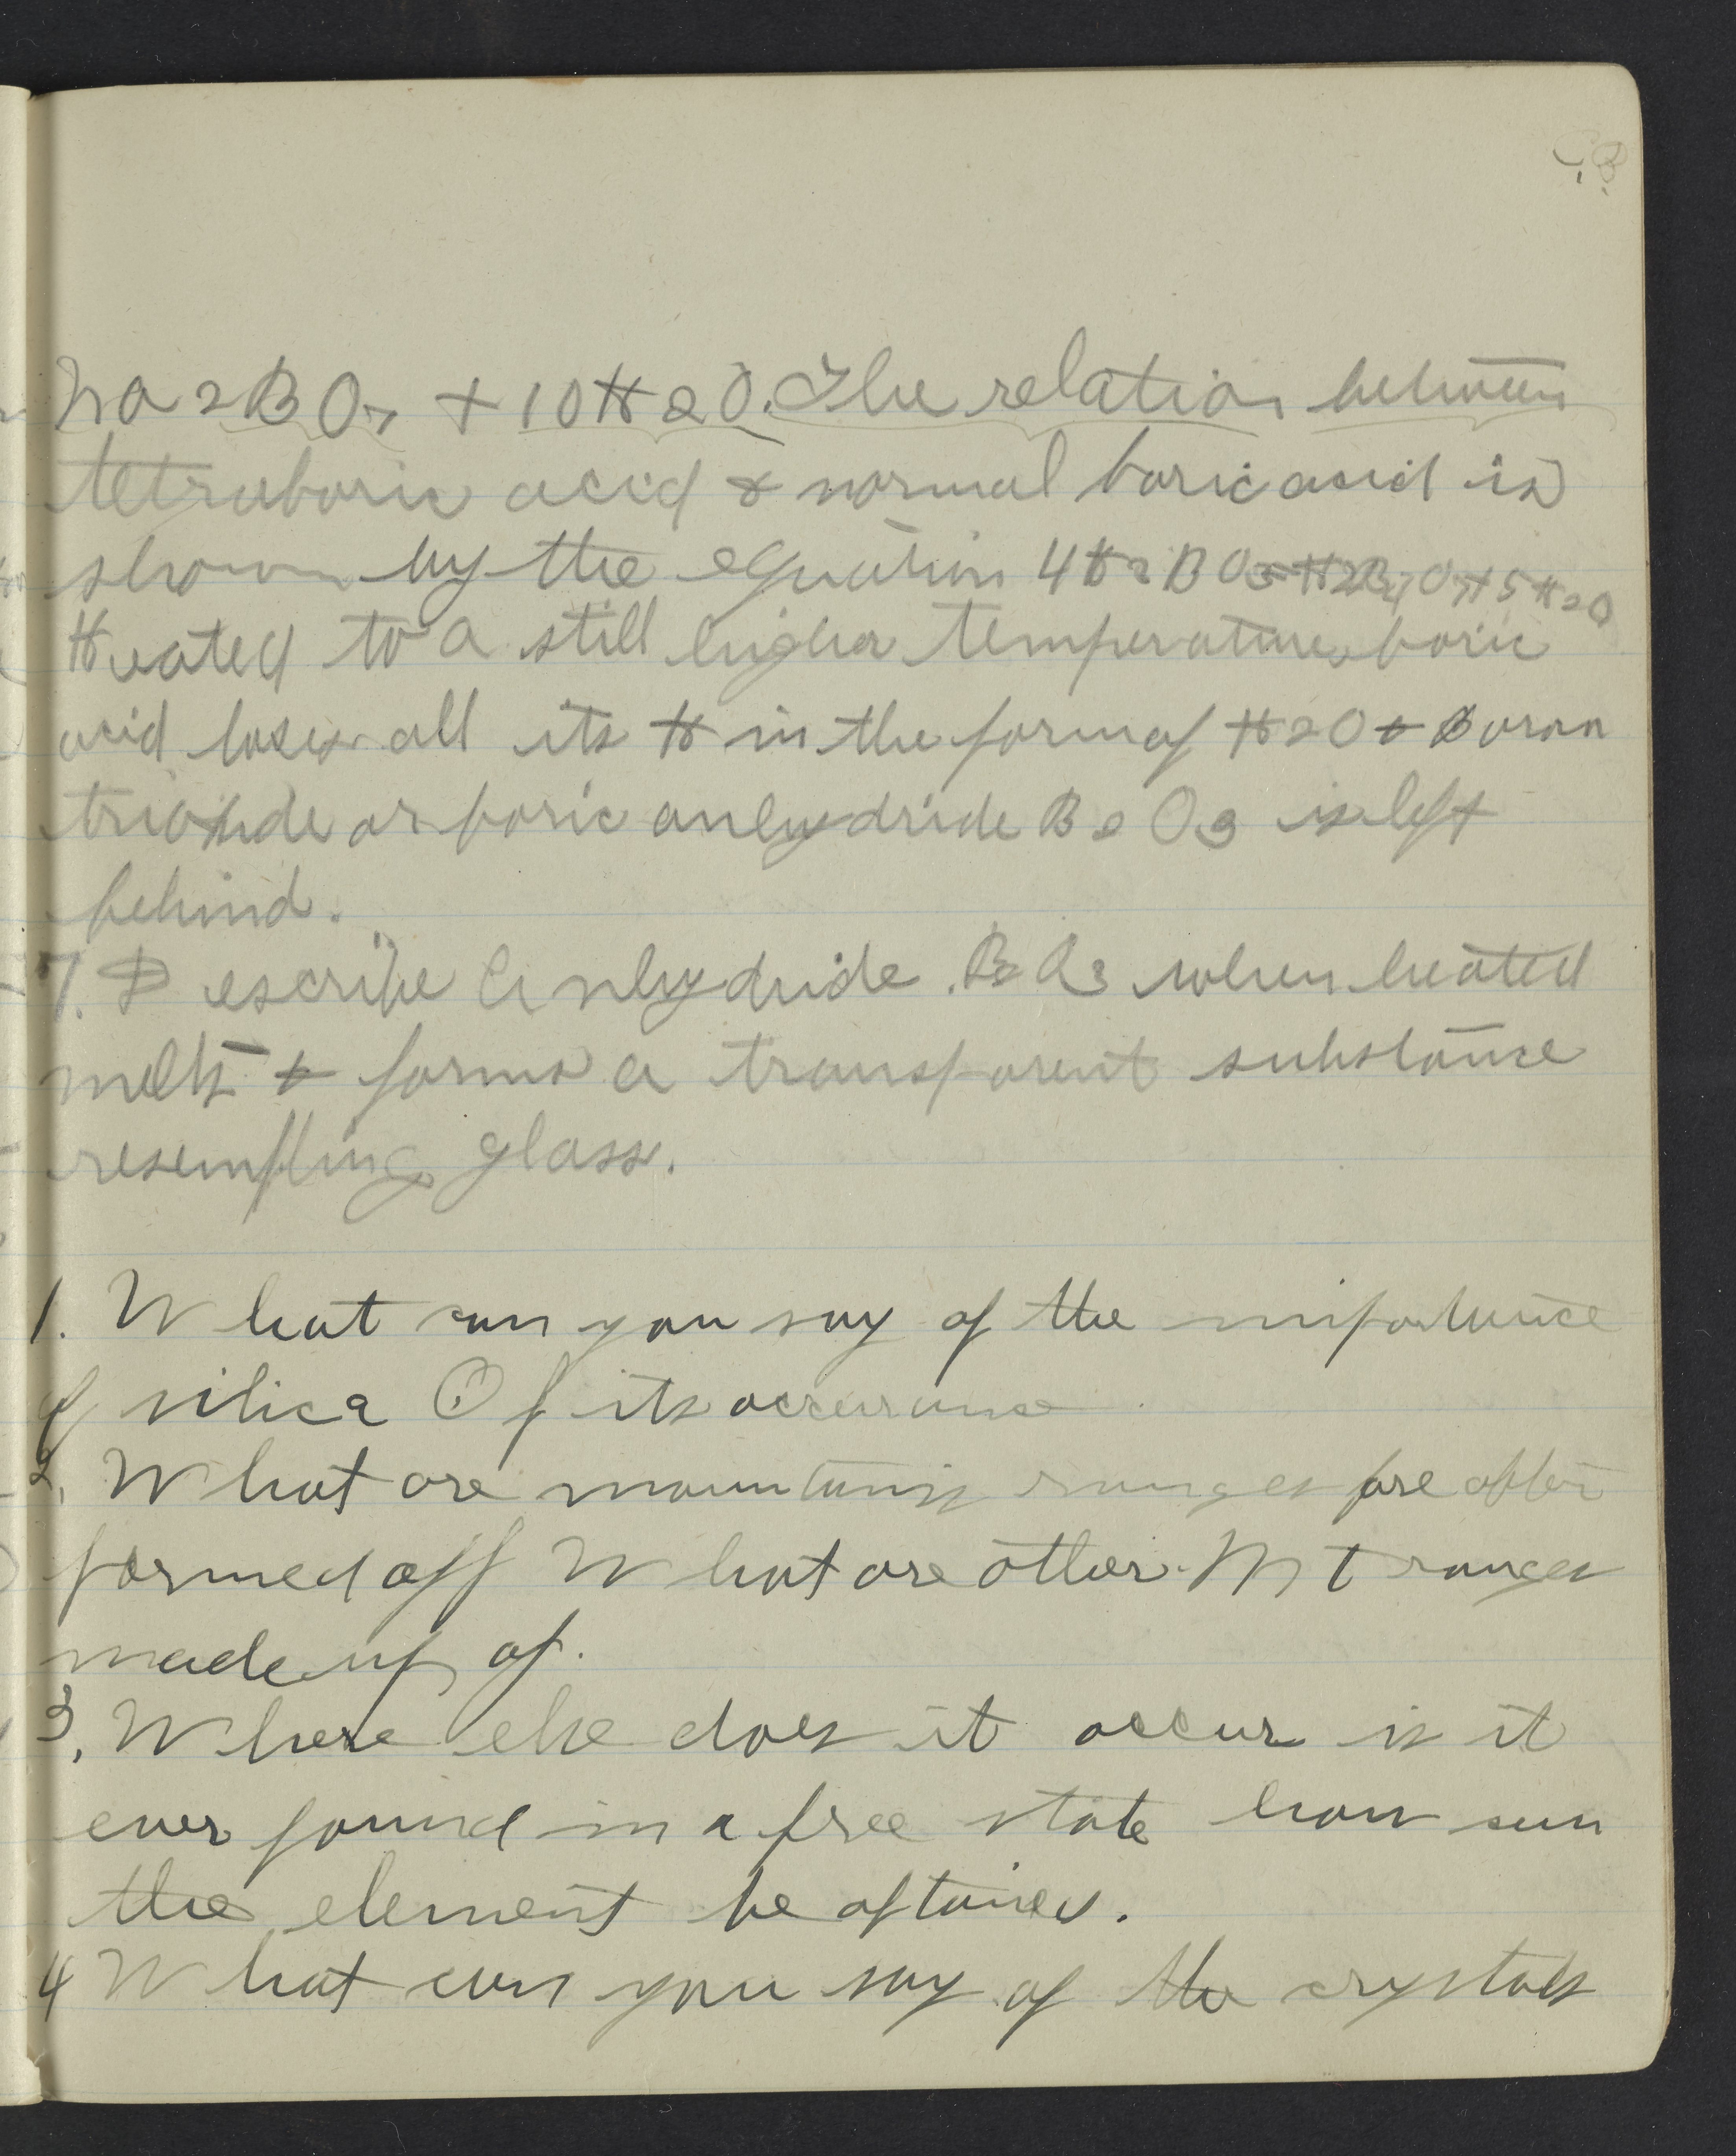 Na2BO7 + 10H2O. The relation between
tetraboric acid & normal boric acid is
shown by the equation 4H3BO3=H2B4O7+5H2O
Heated to a still higher temperature boric
acid loses all its H in the form of H2O & Boron
trioxide or boric anhydride B2O3 is left
behind.
7. Describe Anhydride. B2O3 when heated
melts & forms a transparent substance
resembling glass.
1. What can you say of the importance
of silica Of its occurance
2. What are mountains ranges are often
formed off What are other Mt ranges
made up of.
3. Where else does it occur is it
ever found in a free state how can
the element be obtained.
4 What can you say of the crystals